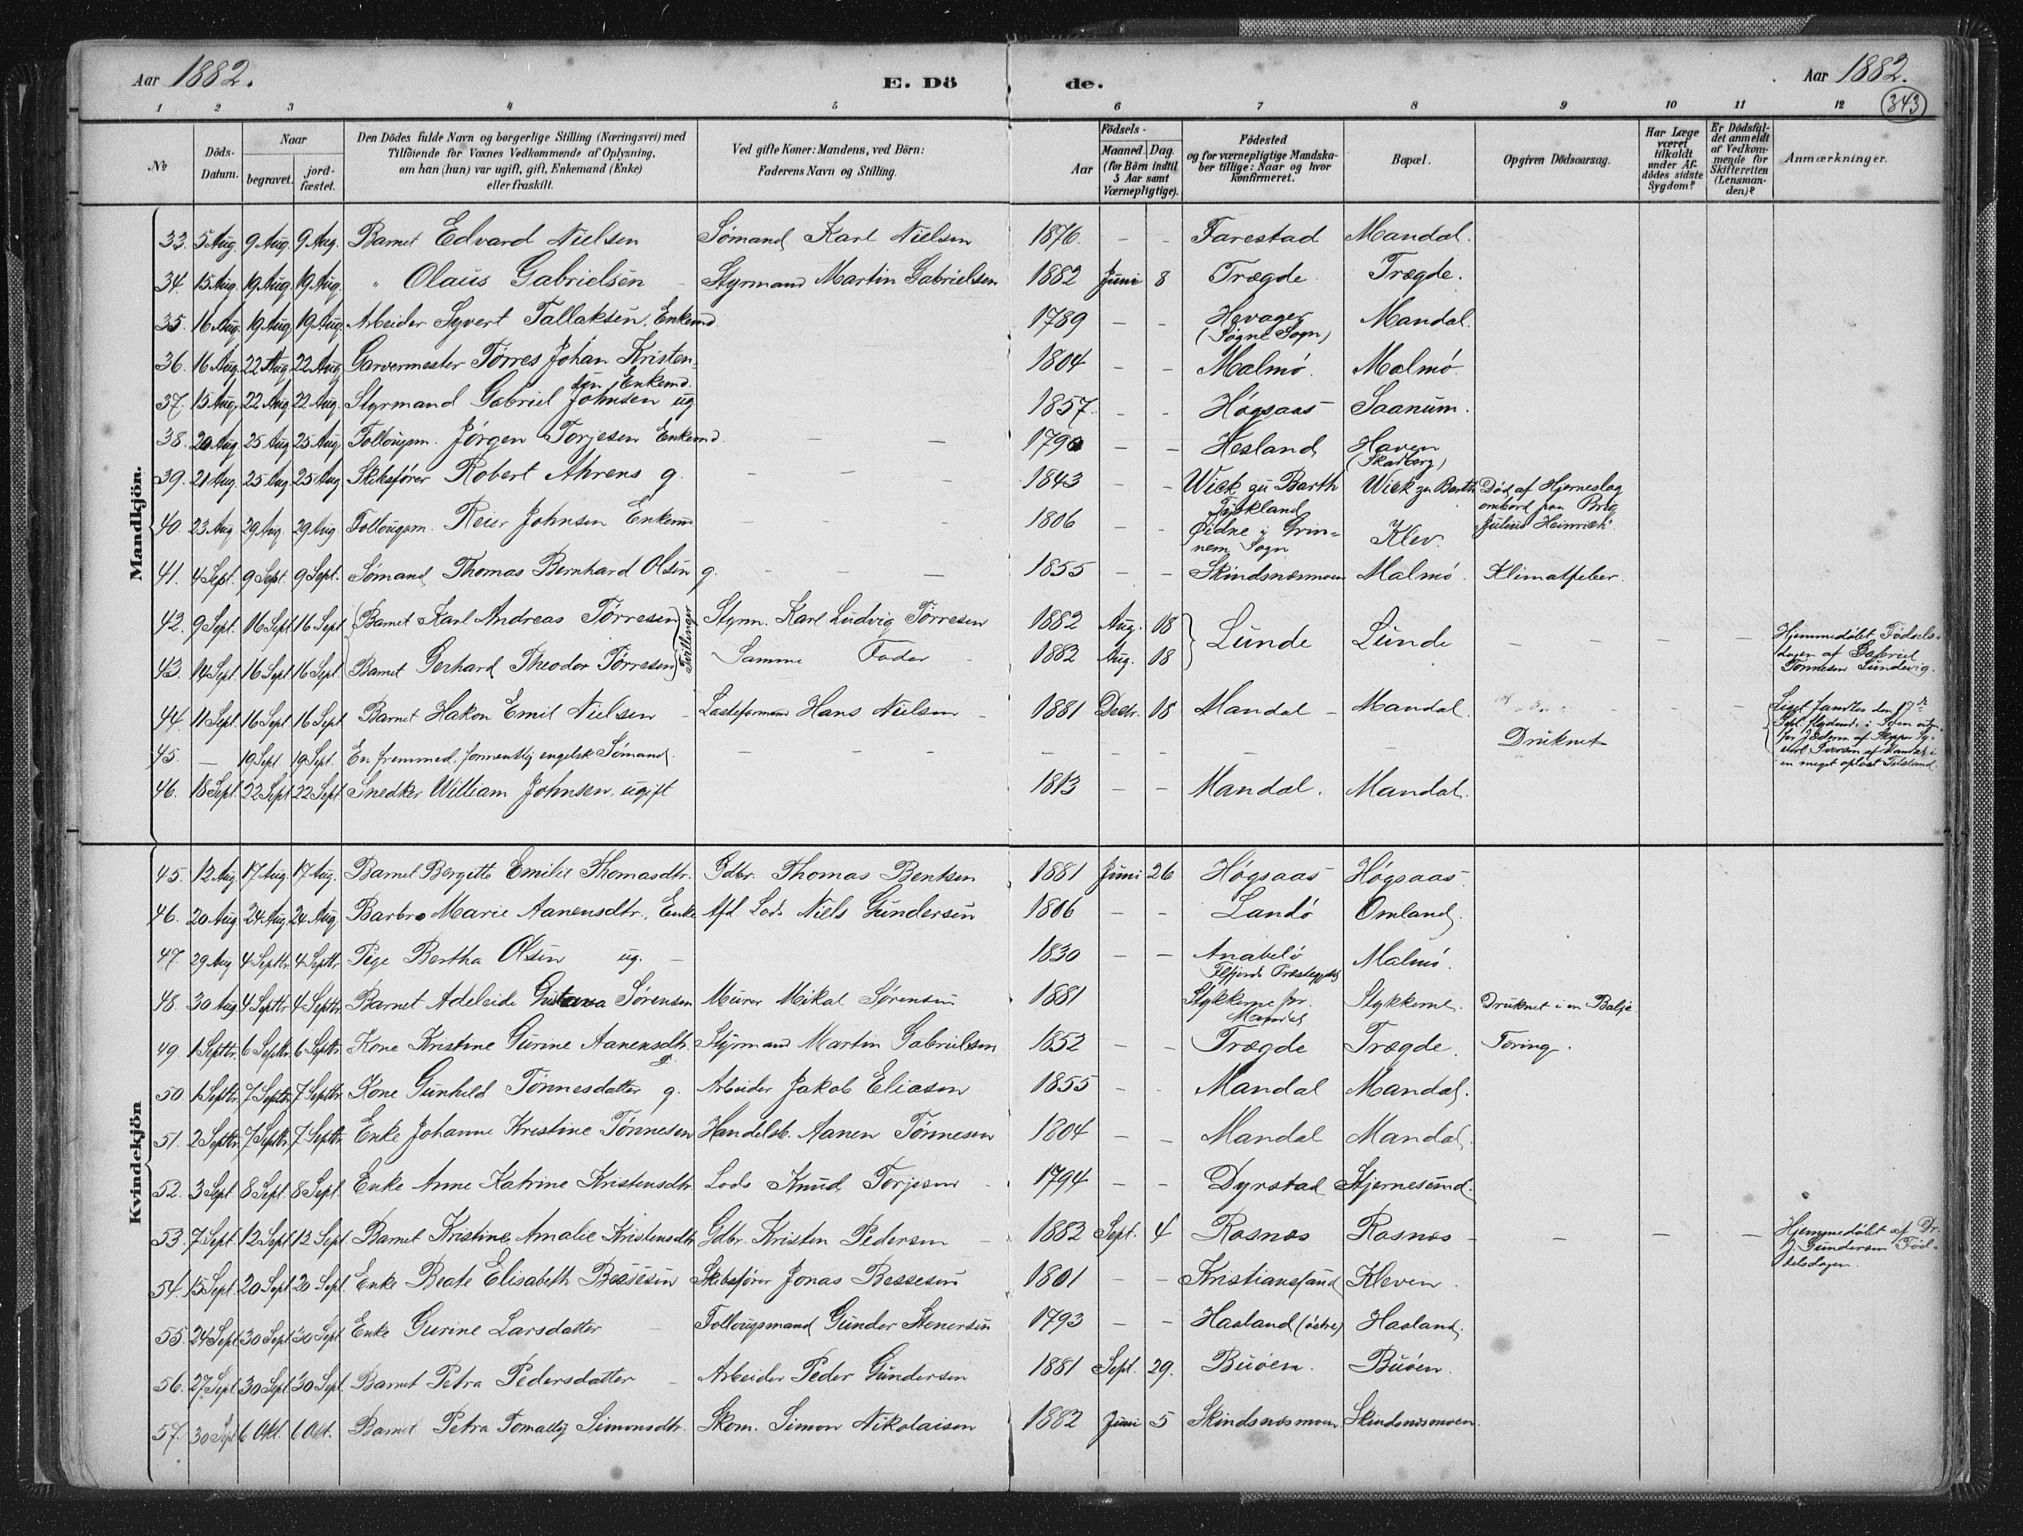 Aar 1882. E. Dö de. Aar 1882.
343
1 2 3 4 5 6 7 8 9 10 11 12
No Döds-Datum. Naar begravet. jordfæstet. Den Dödes fulde Navn og borgerlige Stilling (Næringsvei) med Tilföiende for Voxnes Vedkommende af Oplysning, om han (hun) var ugift, gift, Enkemand (Enke) eller fraskilt. Ved gifte Koner: Mandens, ved Börn: Faderens Navn og Stilling. Aar Födsels- Maaned. Dag. (for Börn indtil 5 Aar samt Værnepligtige). Födested og for værnepligtige Mandskaber tillige: Naar og hvor konfirmeret. Bopæl. Opgiven Dödsaarsag. Har Læge været tilkaldt under Afdödes sidste Sygdom? Er Dödsfaldet anmeldt af Vedkommende for Skifteretten (Lensmanden)? Anmærkninger.
Mandkjön.
33. 5 Aug. 9 Aug. 9 Aug. Barnet Edvard Nielsen Sømand Karl Nielsen 1876. – – Farestad Mandal.
34. 15 Aug. 19 Aug. 19 Aug. " Olaus Gabrielsen – Styrmand Martin Gabrielsen 1882 Juni 8 Trægde Trægde.
35. 16 Aug. 19 Aug. 19 Aug. Arbeider Syvert Tallaksen, Enkemd 1789 – – Høvager (Søgne Sogn) Mandal.
36. 16 Aug. 22 Aug. 22 Aug. Garvermester Tørres Johan Kristensen Enkemd. 1804 – – Malmø. Malmø.
37. 15 Aug. 22 Aug. 22 Aug. Styrmand Gabriel Johnsen ug 1857. – – Høgsaas Saanum.
38. 20 Aug. 25 Aug. 25 Aug. Follougsm. Jørgen Torjesen Enkemd. – – 1790 – – Hesland Haven (Skadberg)
39. 21 Aug. 25 Aug. 25 Aug. Skibsfører Robert Ahrens g. – – – 1843 – – Wiek zu Barth Tyskland Wiek zu Barth Død af Hjerneslag ombord paa Brig Julius Heinrich.
40. 23 Aug. 29 Aug. 29 Aug. Follougsm. Reier Johnsen Enkemd – – – 1806 – – Øidne i Grinnem Sogn Klev.
41. 4 Sept. 9 Sept. 9 Sept. Sømand Thomas Bernhard Olsen g. – – – 1855 – – Skindsnæsmoen Malmø. Klimatfeber.
42. 9 Sept. 16 Sept. 16 Sept. Barnet Karl Andreas Tørresen Tvillinger Styrm. Karl Ludvig Tørresen 1882 Aug. 18 Lunde Lunde – – – Hjemmedøbt Fødselsdagen af Gabriel Tønnesen Lundevig.
43. 14 Sept. 16 Sept. 16 Sept. Barnet Gerhard Theodor Tørresen Samme Fader – 1882 Aug. 18
44. 11 Sept. 16 Sept. 16 Sept. Barnet Hakon Emil Nielsen – Losseformand Hans Nielsen – 1881 Decbr. 18 Mandal – Mandal.
45. – 19 Sept. 19 Sept. En fremmed, formentlig engelsk Sømand. – – – – – – – – Druknet – – Liget fandtes den 17de Sept. flydende i Søen
46. 18 Sept. 22 Sept. 22 Sept. Snedker William Johnsen, ugift 1813 – – Mandal. Mandal.
Kvindekjön
45. 12 Aug. 17 Aug. 17 Aug. Barnet Bergitte Emilie Thomasdtr. Gdbr. Thomas Bentsen 1881 Juni 26 Høgsaas Høgsaas.
46. 20 Aug. 24 Aug. 24 Aug. Barbro Marie Aanensdtr., Enke Afd. Lods Niels Gundersen 1806 – – Landø Omland.
47. 29 Aug. 4 Septbr. 4 Septbr. Pige Bertha Olsen ug. – 1830 – – Anabelø Fjord Præstegjæld Malmø.
48. 30 Aug. 4 Septbr. 4 Septbr. Barnet Adeleide Gustava Sørensen Murer Mikal Sørensen 1881 – – Stykkerne for Mandal Stykkerne. Druknet i en Balje
49. 1 Septbr. 6 Septbr. 6 Septbr. Kone Kristine Gurine Aanensdtr. g. Styrmand Martin Gabrielsen 1852 – – Trægde Trægde. Tæring.
50. 1 Septbr. 7 Septbr. 7 Septbr. Kone Gunhild Tønnesdatter g. Arbeider Jakob Eliasen 1855 – – Mandal Mandal.
51. 2 Septbr. 7 Septbr. 7 Septbr. Enke Johanne Kristine Tønnesen Handelsb. Aanen Tønnesen 1804 – – Mandal Mandal.
52. 3 Sept. 8 Sept. 8 Sept. Enke Anne Katrine Kristensdtr. Lods Knud Torjesen – 1794 – – Dyrstad Stjernesund.
53. 7 Sept. 12 Sept. 12 Sept. Barnet Kristine Amalie Kristensdtr Gdbr. Kristen Pedersen – 1882 Sept. 4 Rosnæs Rosnæs – – – – Hjemmedøbt af Dr. J. Gundersen Fødselsdagen.
54. 15 Sept. 20 Sept. 20 Sept. Enke Beate Elisabeth Bessesen Skibsfører Jonas Bessesen 1801 – – Kristianssand Kleven.
55. 24 Sept. 30 Sept. 30 Sept. Enke Gurine Larsdatter – Follougsmand Gunder Stenersen 1793 – – Haaland (østre) Haaland.
56. 27 Sept. 30 Sept. 30 Sept. Barnet Petra Pedersdatter – Arbeider Peder Gundersen 1881 Sept. 29. Buøen. Buøen.
57. 30 Sept. 6 Okt. 6 Okt. Barnet Petra Tomally Simonsdtr. Skom. Simon Nikolaisen 1882 Juni 5 Skindsnæsmoen Skindsnæsmoen.